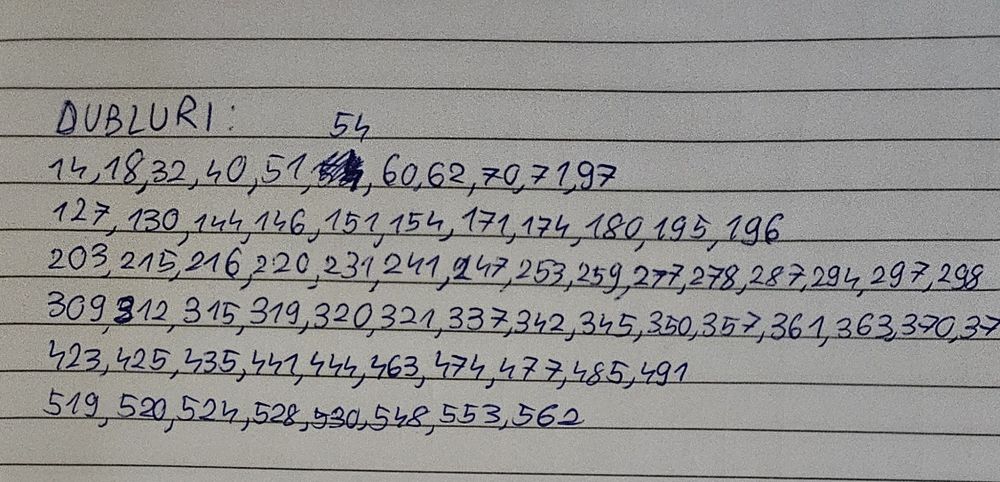 DUBLURI:
54
14,18,32,40,51, ,60,62,70,71,97
127,130,144,146,151,154,171,174,180,195,196
203,215,216,220,231,241,247,253,259,277,278,287,294,297,298
309,312,315,319,320,321,337,342,345,350,357,361,363,370,37
423,425,435,441,444,463,474,477,485,491
519,520,524,528,530,548,553,562